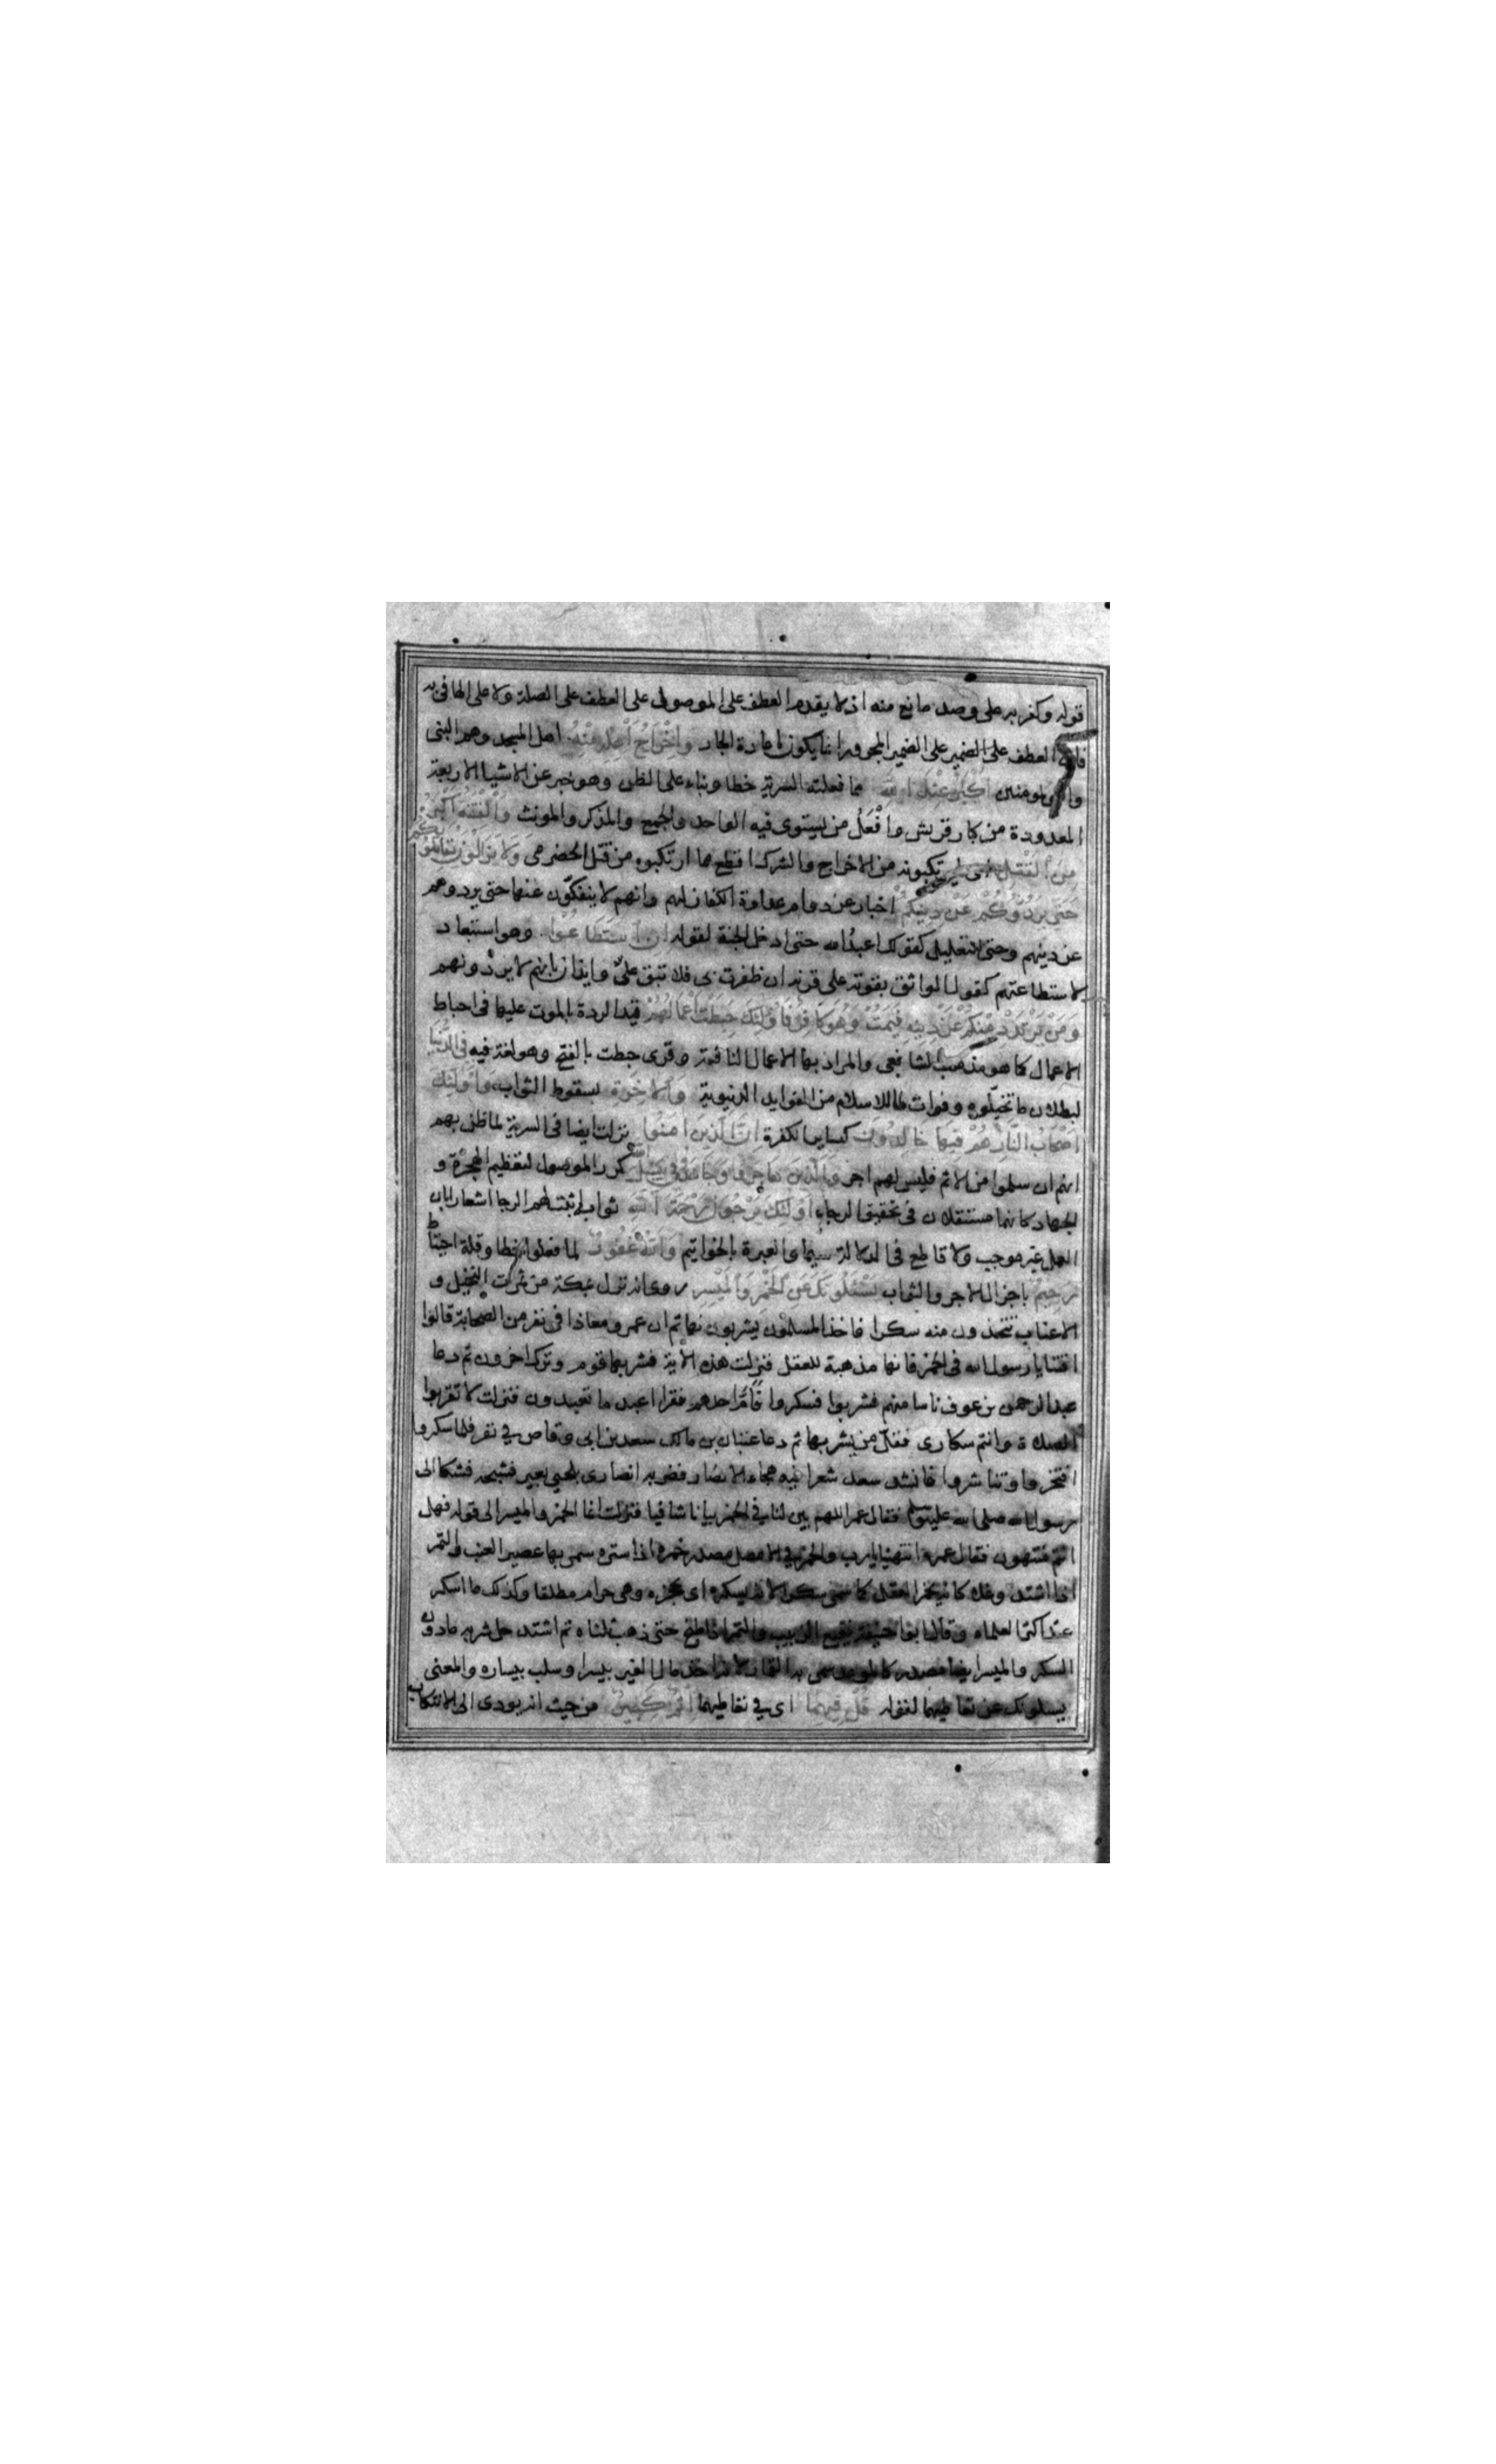 قوله وكفر به على وصد مانع منه اذ لا يقدم العطف على الموصول على العطف على الصلة ولا على الها فى به
فان العطف على الضمير على الضمير المجرور انما يكون باعادة الجار وَاِخْرَاجُ اَهْلِهِ مِنْهُ اهل المسجد وهم النبى
والمومنين اَكْبَرُ عِنْدَ اللهِ مما فعلته السرية خطا وبناء على الظن وهو خبر عن الاشيا الاربعة
المعدودة من كبار قريش وافْعَلُ من يستوى فيه الواحد والجمع والمذكر والمونث وَالْفِتْنَةُ اَكْبَرُ
مِنَ القَتْلِ اى ما يرتكبونه من الاخراج والشرك افظع مما ارتكبوه من قتل الحضرمى وَلَا يَزَالُوْنَ يُقَاتِلُوْنَكُمْ
حَتّى يَرُدُّوْكُمْ عَنْ دِيْنِكُمْ اخبار عن دوام عداوة الكفار لهم وانهم لا ينفكّون عنها حتى يردوهم
عن دينهم وحتى للتعليل كقولك اعبدُ الله حتى ادخل الجنة لقوله اِنِ اسْتَطَاعُوْا وهو استبعاد
لاستطاعتهم كقول الواثق بقوته على قرنه ان ظفرت بى فلا تبق علىّ وايذان بانهم لا يردّونهم
وَمَنْ يَرْتَدِدْ مِنْكُمْ عَنْ دِيْنِهِ فَيَمُتْ وَهُوَ كَافِرٌ فَاوُلَئِكَ حَبِطَتْ اَعْمَالُهُمْ قيد الردة بالموت عليها فى احباط
الاعمال كما هو مذهب الشافعى والمراد بها الاعمال النافعة وقرى حبطت بالفتح وهو لغة فيه فِى الدُّنْيَا
لبطلان ما تخيّلوه وفوات ما للاسلام من الفوايد الدنيوية وَالاخِرَةِ بسقوط الثواب وَاُولَئِكَ
اَصْحَابُ النَّارِ هُمْ فِيْهَا خَالِدُوْنَ كساير الكفرة اِنَّ الَّذِيْنَ امَنُوْا نزلت ايضا فى السرية لما ظن بهم
انهم ان سلموا من الاثم فليس لهم اجر وَالَّذِيْنَ هَاجَرُوْا وَجَاهَدُوْا فِى سَبِيْلِ اللهِ كرر الموصول لتعظيم الهجرة و
الجهاد كانهما مستقلان فى تحقيق الرجاء اُولَئِكَ يَرْجُوْنَ رَحْمَةَ اللهِ ثوابه اثبت لهم الرجا اشعارا بان
العمل غير موجب ولا قاطع فى الدلالة سيما والعبرة بالخواتيم وَاللهُ غَفُوْرٌ لما فعلوا خطا وقلة احتياط
رَحِيْمٌ باجزال الاجر والثواب يَسْئَلُوْنَكَ عَنِ الْخَمْرِ وَالْمَيْسِرِ روى انه نزل بمكة من ثمرات النخيل و
الاعناب تتخذون منه سكرا فاخذ المسلمون يشربون نها ثم ان عمر ومعاذا فى نفر من الصحابة قالوا
افتنا يا رسول الله فى الخمر فانها مذهبة للعقل فنزلت هذه الاية فشربها قوم وترك اخرون ثم دعا
عبد الرحمن بن عوف ناسا منهم فشربوا فسكروا فامّ احدهم فقرا اعبد ما تعبدون فنزلت لا تقربوا
الصلاة وانتم سكارى فقلّ من يشربها ثم دعا عتبان بن مالك سعد بن ابى وقاص فى نفر فلما سكروا
افتخروا وتناشروا فانشد سعد شعرا فيه هجاء الانصار فضربه انصارى بلحى بعير فشجه فشكا الى
رسول الله صلى الله عليه وسلم فقال عمر اللهم بين لنا فى الخمر بيانا شافيا فنزلت انما الخمر والميسر الى قوله فهل
انتم منتهون فقال عمر انتهينا يا رب والخمر فى الاصل مصدر خمره اذا ستره سمى بها عصير العنب والتمر
اذا اشتد وغلا كانه يخمر العقل كما سمى سكرا لانه يسكره اى يحجزه وهى حرام مطلقا وكذلك ما اسكر
عند اكثر العلماء وقال ابو حنيفة نقيع الزبيب والتمر اذا طبخ حتى ذهب ثلثاه ثم اشتد حل شربه ما دون
السكر والميسر ايضا مصدر كالموعد سمى به القمار لانه اخذ مال الغير بيسر او سلب يساره والمعنى
يسلونك عن تعاطيهما لقوله قُلْ فِيْهِمَا اى فى تعاطيهما اِثْمٌ كَبِيْرٌ من حيث انه يودى الى الانتكاب